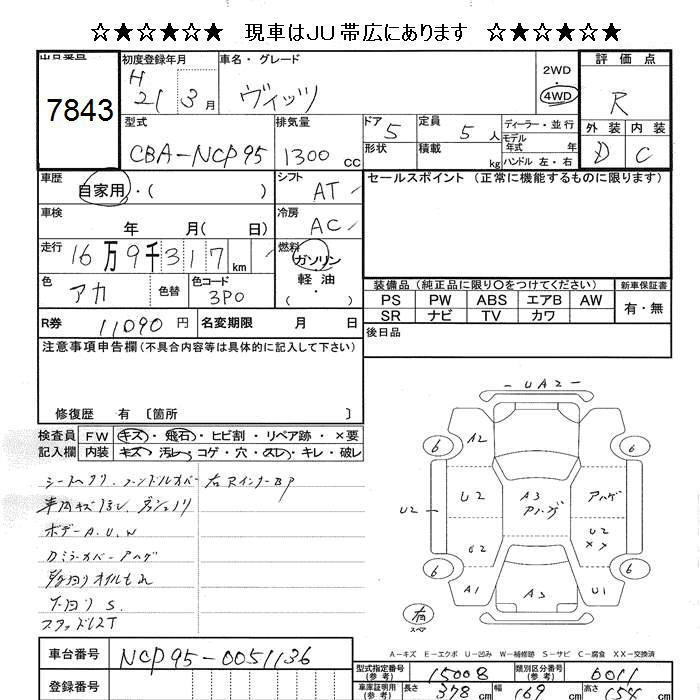 ☆★☆★☆ 現車はJU帯広にあります ☆★☆★☆
出品番号
7843
初度登録年月
H 21 3月
車名・グレード
ヴィッツ
2WD
・
4WD
評価点
R
外装 内装
D C
型式
CBA-NCP95
排気量
1300 cc
ドア
5
定員
5人
形状
積載
kg
ディーラー・並行
モデル年式 年
ハンドル 左・右
車歴
自家用・( )
シフト
AT
車検
年 月( 日)
冷房
AC
走行
16万9千317km
燃料
ガソリン
軽油
・
( )
色
アカ
色替
色コード
3P0
R券 11090円
名変期限 月 日
セールスポイント (正常に機能するものに限ります)
装備品 (純正品に限り○をつけてください)
新車保証書
PS PW ABS エアB AW
SR ナビ TV カワ
有・無
後日品
注意事項申告欄(不具合内容等は具体的に記入して下さい)
修復歴 有 〔箇所 〕
検査員記入欄
FW キズ・飛石・ヒビ割・リペア跡・×要
内装 キズ・汚レ・コゲ・穴・スレ・キレ・破レ
ボデーA.U.W
下回りS.
スタッドレスT
UA2
A2
U2
U2
A3
アハゲ
アハゲ
U2
XX
U2
A1
A3
U1
6
6
6
6
スペア
A-キズ E-エクボ U-凹み W-補修跡 S-サビ C-腐食 XX-交換済
車台番号 NCP95-0051136
登録番号
型式指定番号(参考) 15008
類別区分番号(参考) 0011
車庫証明用(参考)
長さ 378cm
幅 169cm
高さ 154cm